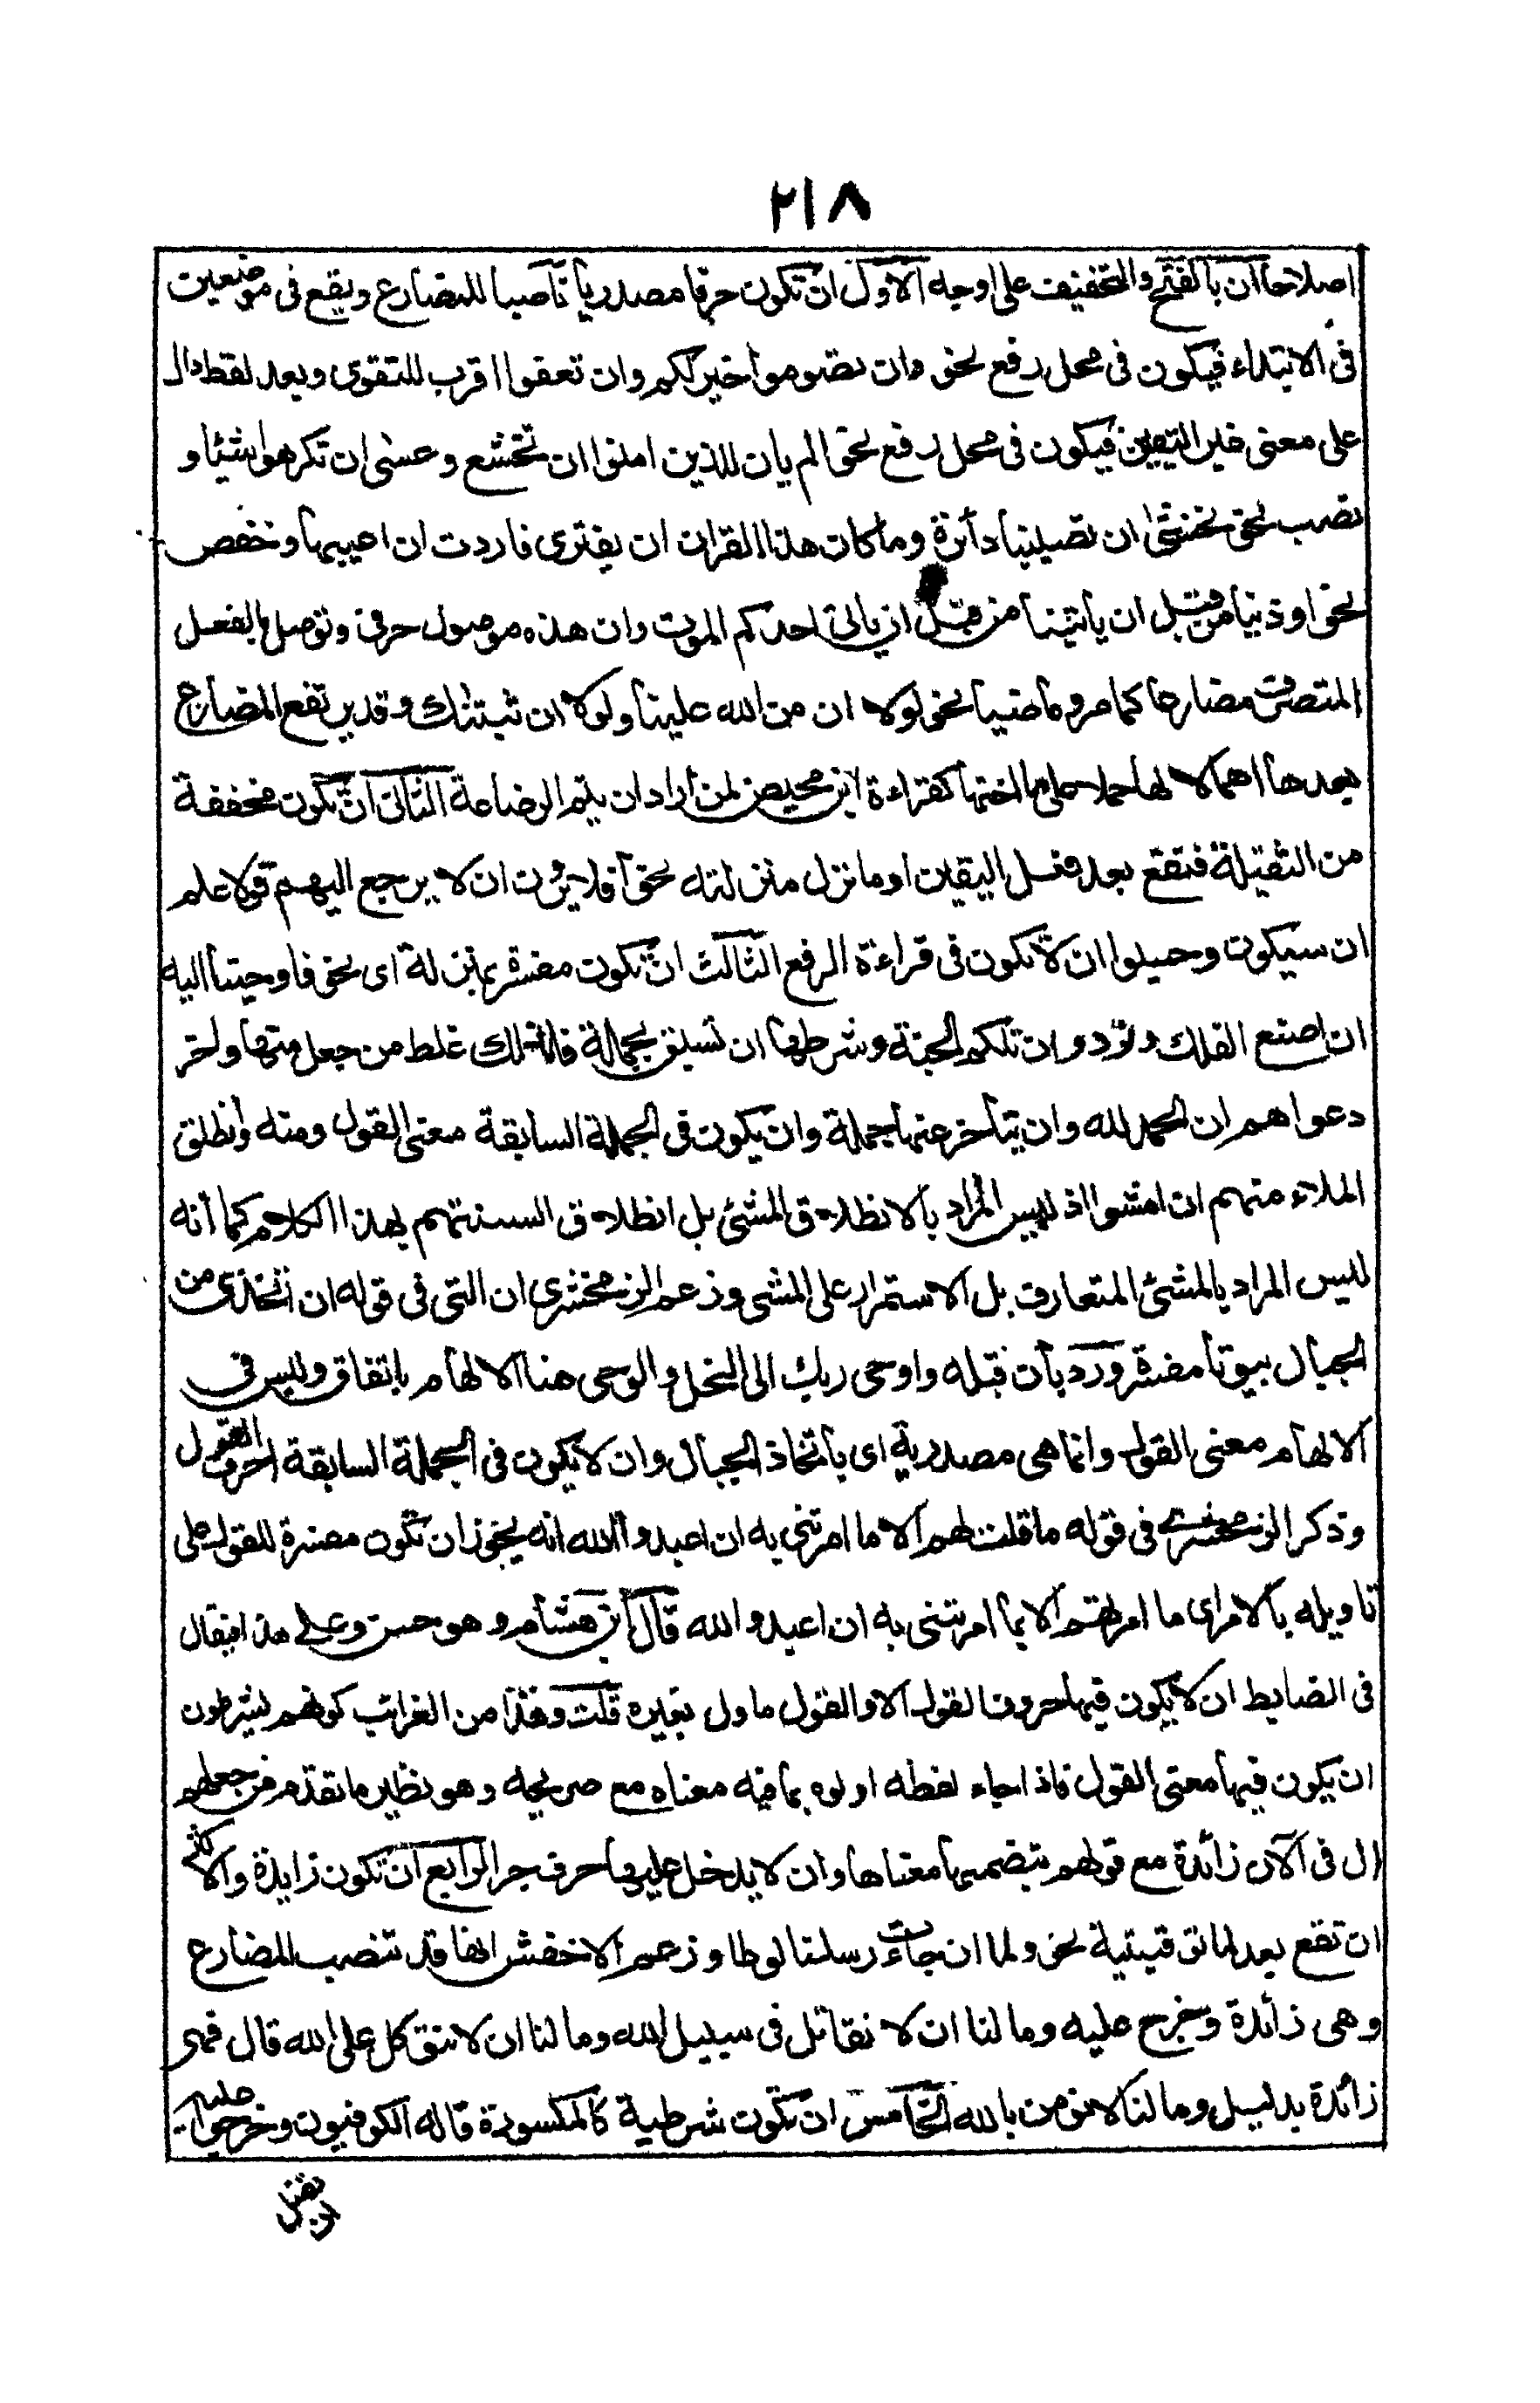 ٢١٨
اصلاحا ان بالفتح والتخفيف على اوجه الاول ان تكون حرفا مصدريا ناصبا للمضارع ويقع فى موضعين
فى الابتداء فيكون فى محل رفع نحو وان تصوموا خير لكم وان تعفوا اقرب للتقوى وبعد لفظ دال
على معنى غير اليقين فيكون فى محل رفع نحو الم يان للذين امنوا ان تخشع وعسى ان تكرهوا شيئا و
نصب نحو نخشى ان تصيبنا دائرة وما كان هذا القران ان يفترى فاردت ان اعيبها وخفض
نحو اوذينا من قبل ان يأتينا من قبل ان يأتى احدكم الموت وان هذه موصول حرفى وتوصل بالفعل
المتصرف مضارعا كما مر وماضيا نحو لولا ان من الله علينا ولولا ان ثبتناك وقد يرتفع المضارع
بعدها اهمالا لها حملا على ما اختها كقراءة ابن محيصن لمن اراد ان يتم الرضاعة الثانى ان تكون مخففة
من الثقيلة فتقع بعد فعل اليقين او ما نزل منزلته نحو افلا يرون ان لا يرجع اليهم قولا علم
ان سيكون وحسبوا ان لا تكون فى قراءة الرفع الثالث ان تكون مفسرة بمنزلة اى نحو فاوحينا اليه
ان اصنع الفلك ونودوا ان تلكم الجنة وشرطها ان تسبق بجملة فلذلك غلط من جعل منها واخر
دعواهم ان الحمد لله وان يتأخر عنها جملة وان يكون فى الجملة السابقة معنى القول ومنه وانطلق
الملاء منهم ان امشوا اذ ليس المراد بالانطلاق المشئ بل انطلاق السنتهم بهذا الكلام كما أنه
ليس المراد بالمشئ المتعارف بل الاستمرار على المشى وزعم الزمخشرى ان التى فى قوله ان اتخذى من
الجبال بيوتا مفسرة ورد بأن قبله واوحى ربك الى النحل والوحى هنا الالهام باتفاق وليس فى
الالهام معنى القول وانما هى مصدرية اى باتخاذ الجبال وان لا يكون فى الجملة السابقة احرف القول
وذكر الزمخشرى فى قوله ما قلت لهم الا ما امرتنى به ان اعبدوا الله انه يجوز ان تكون مفسرة للقول على
تاويله بالامر اى ما امرتهم الا بما امرتنى به ان اعبدوا الله قال ابن هشام وهو حسن وعلى هذا فيقال
فى الضابط ان لا يكون فيها حروف القول الا والقول ماول بغيره قلت وهذا من الغرائب كونهم يشترطون
ان يكون فيها معنى القول فاذا جاء لفظه اولوه بما فيه معناه مع صريحه وهو نظير ما تقدم من جعلهم
ال فى الآن زائدة مع قولهم بتضمنها معناها وان لا يدخل عليها حرف جر الرابع ان تكون زايدة والاكثر
ان تقع بعد لما التوقيتية نحو ولما ان جاءت رسلنا لوطا وزعم الاخفش انها قد تنصب المضارع
وهى زائدة وخرج عليه وما لنا ان لا نقاتل فى سبيل الله وما لنا ان لا نتوكل على الله قال فهى
زائدة بدليل وما لنا لا نؤمن بالله الخامس ان تكون شرطية كالمكسورة قاله الكوفيون وخرجوا عليه
ان تضل